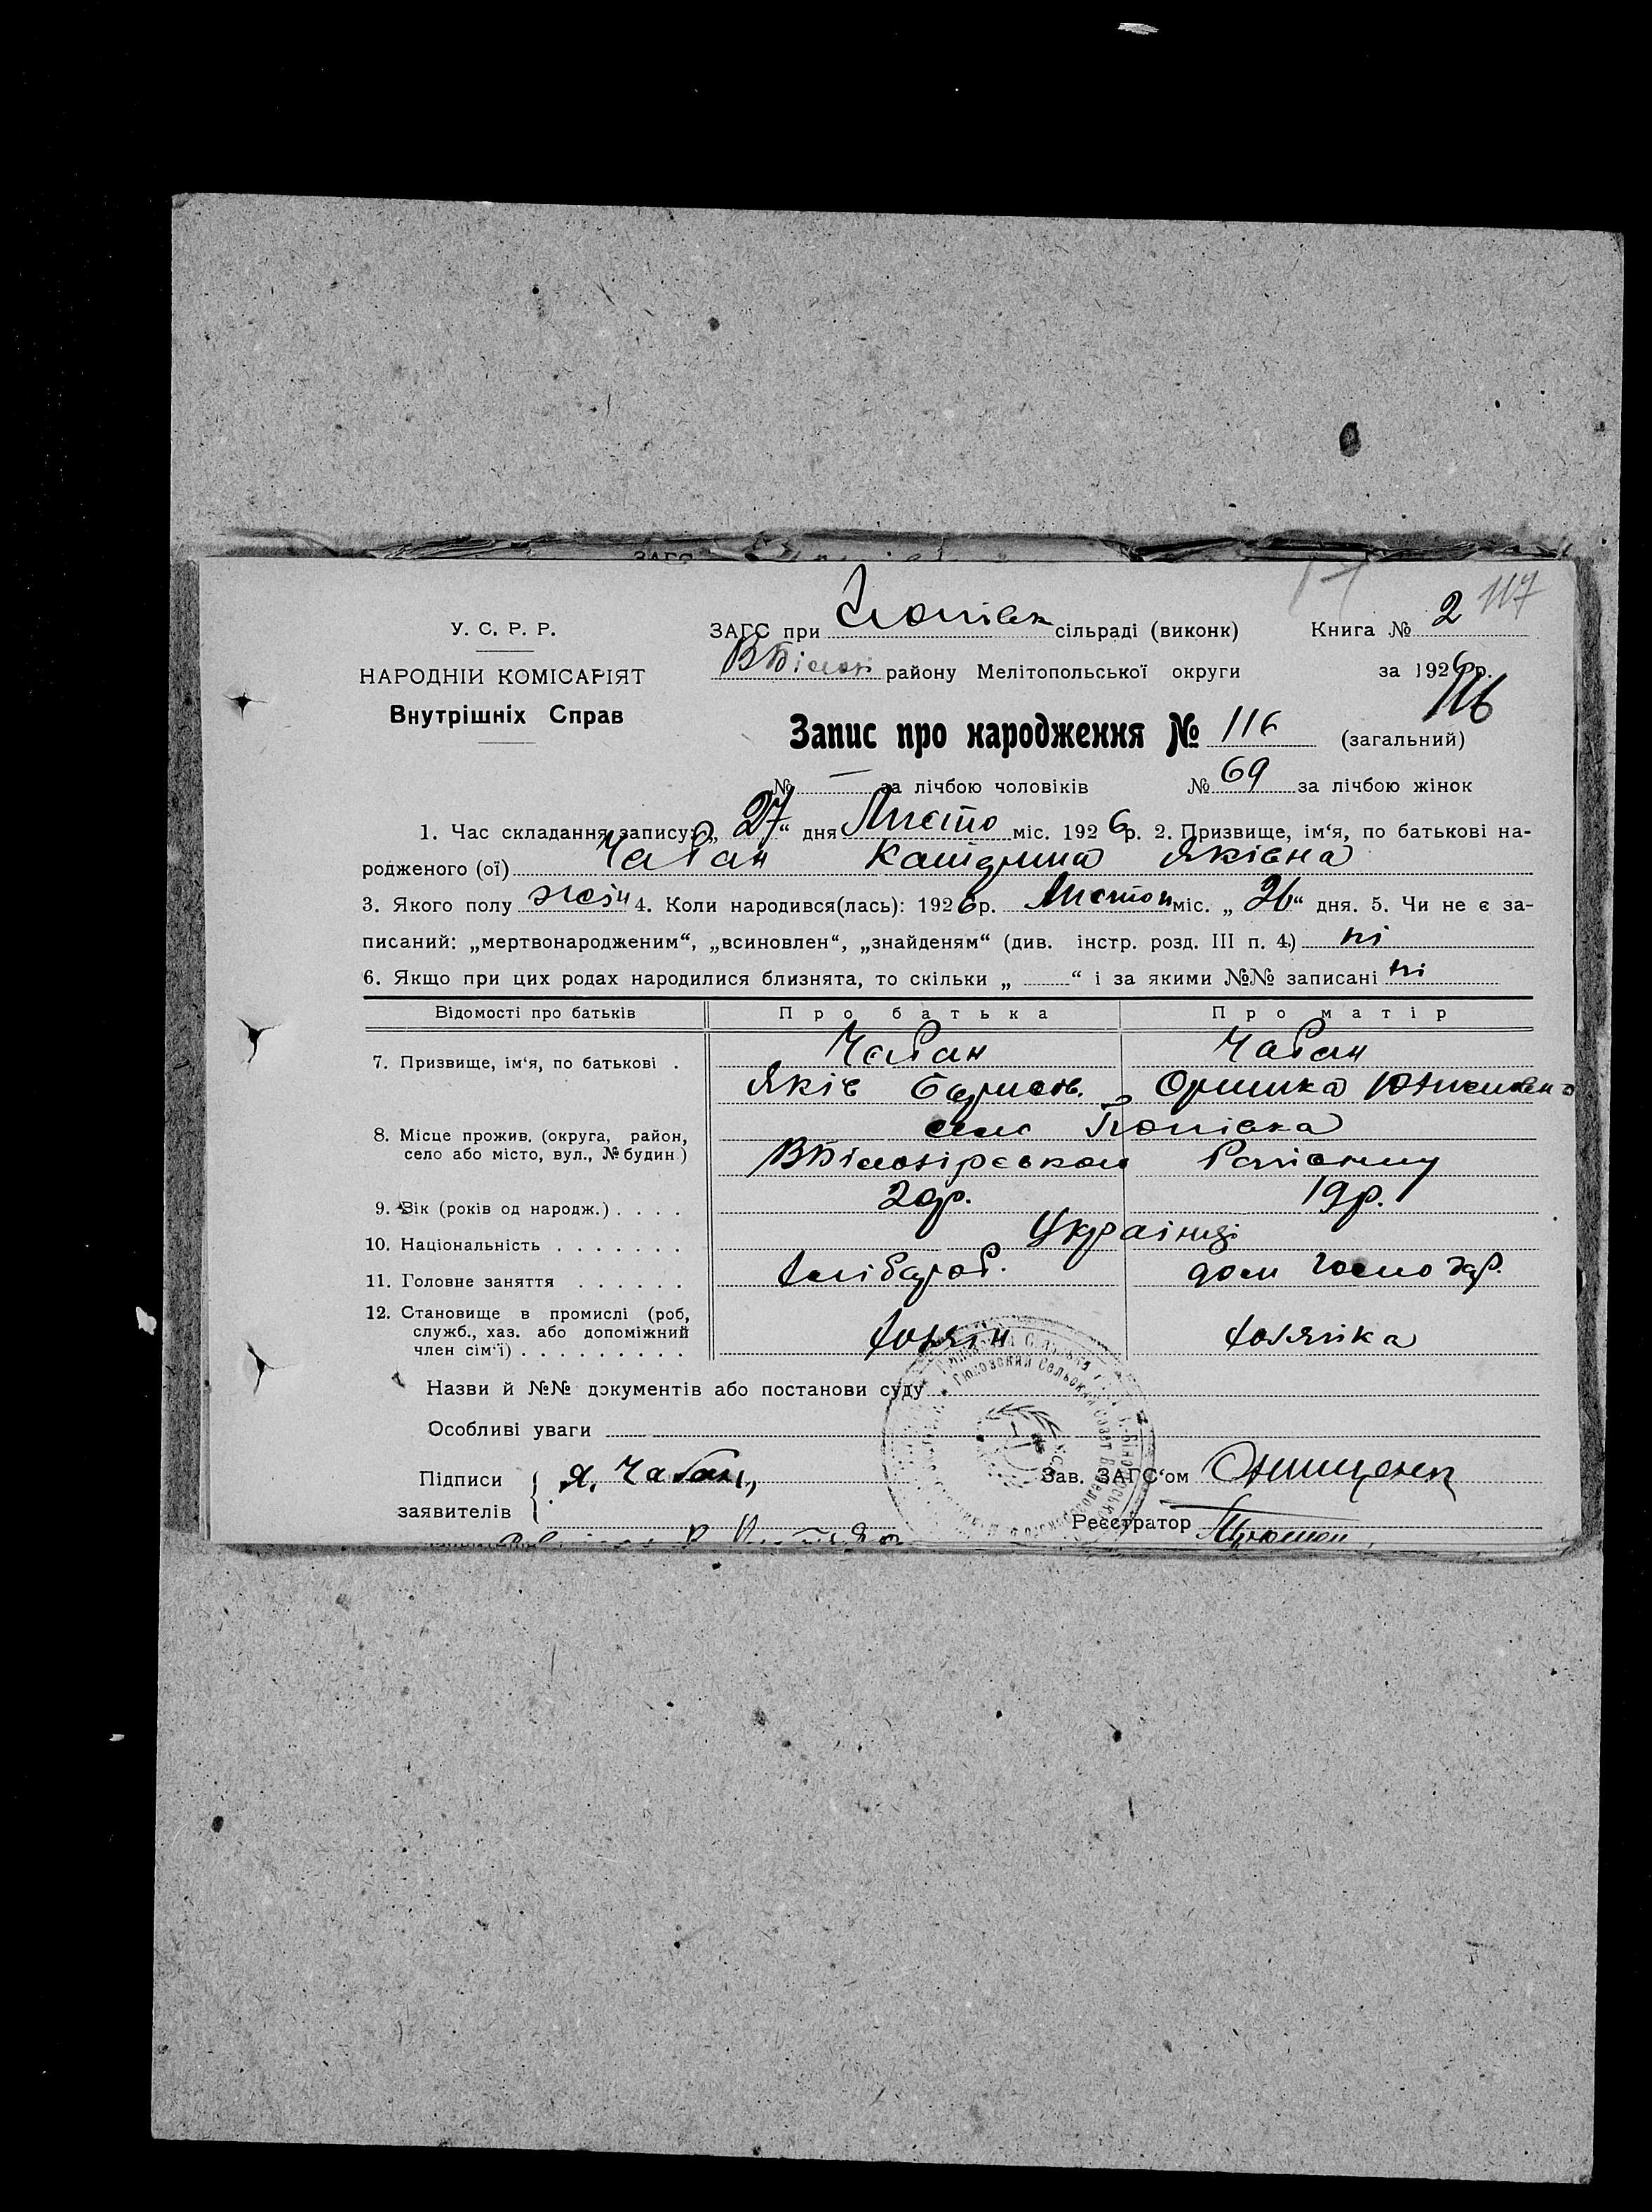 117
У. С. Р. Р.
ЗАГС при сільраді (виконк)
Книга № 2
НАРОДНІЙ КОМІСАРІЯТ
ВБілозі району Мелітопольської округи
за 1926 рр.
116
Внутрішніх Справ
Запис про народження № 116 (загальний)
№ — за лічбою чоловіків № 69 за лічбою жінок
1. Час складання запису: „27“ дня Листо міс. 1926 р. 2. Призвище, ім‘я, по батькові на-
родженого (ої) Чабан Катерина Яківна
3. Якого полу жін 4. Коли народився(лась): 1926 р. Листоп міс. „26“ дня. 5. Чи не є за-
писаний: „мертвонародженим“, „всиновлен“, „знайденям“ (див. інстр. розд. III п. 4.) ні
6. Якщо при цих родах народилися близнята, то скільки „ “ і за якими №№ записані ні
Відомості про батьків Про батька Про матір
7. Призвище, ім‘я, по батькові . Чабан Чабан
Яків Оришка
8. Місце прожив. (округа, район, село Попівка
село або місто, вул., № будин.) ВБілозірського Району
9. Вік (років од народж.) . . . . 20р. 19р.
10. Національність . . . . . . . Українці
11. Головне заняття . . . . . . хлібороб. дом господар.
12. Становище в промислі (роб,
служб., хаз. або допоміжний
член сім‘ї) . . . . . . . . . хозяїн хозяйка
Назви й №№ документів або постанови суду
Особливі уваги
Підписи Я. Чабан
заявителів
Зав. ЗАГС‘ом Онищенко
Реєстратор